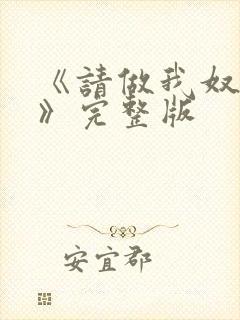 《請做我奴
》完整版
安宜郡